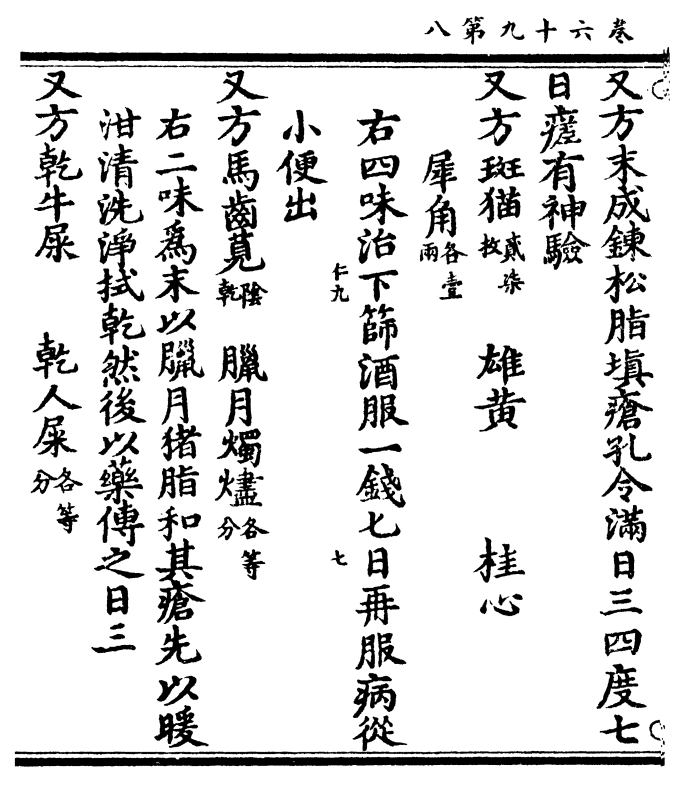 卷六十九第八
又方末成鍊松脂填瘡孔令滿日三四度七
日瘥有神驗
又方斑猫貳柒枚 雄黄 桂心
犀角各壹兩
右四味治下篩酒服一錢七日再服病從
仁九 七
小便出
又方馬齒莧陰乾 臘月燭燼各等分
右二味爲末以臘月猪脂和其瘡先以暖
泔清洗淨拭乾然後以藥傅之日三
又方乾牛屎 乾人屎各等分